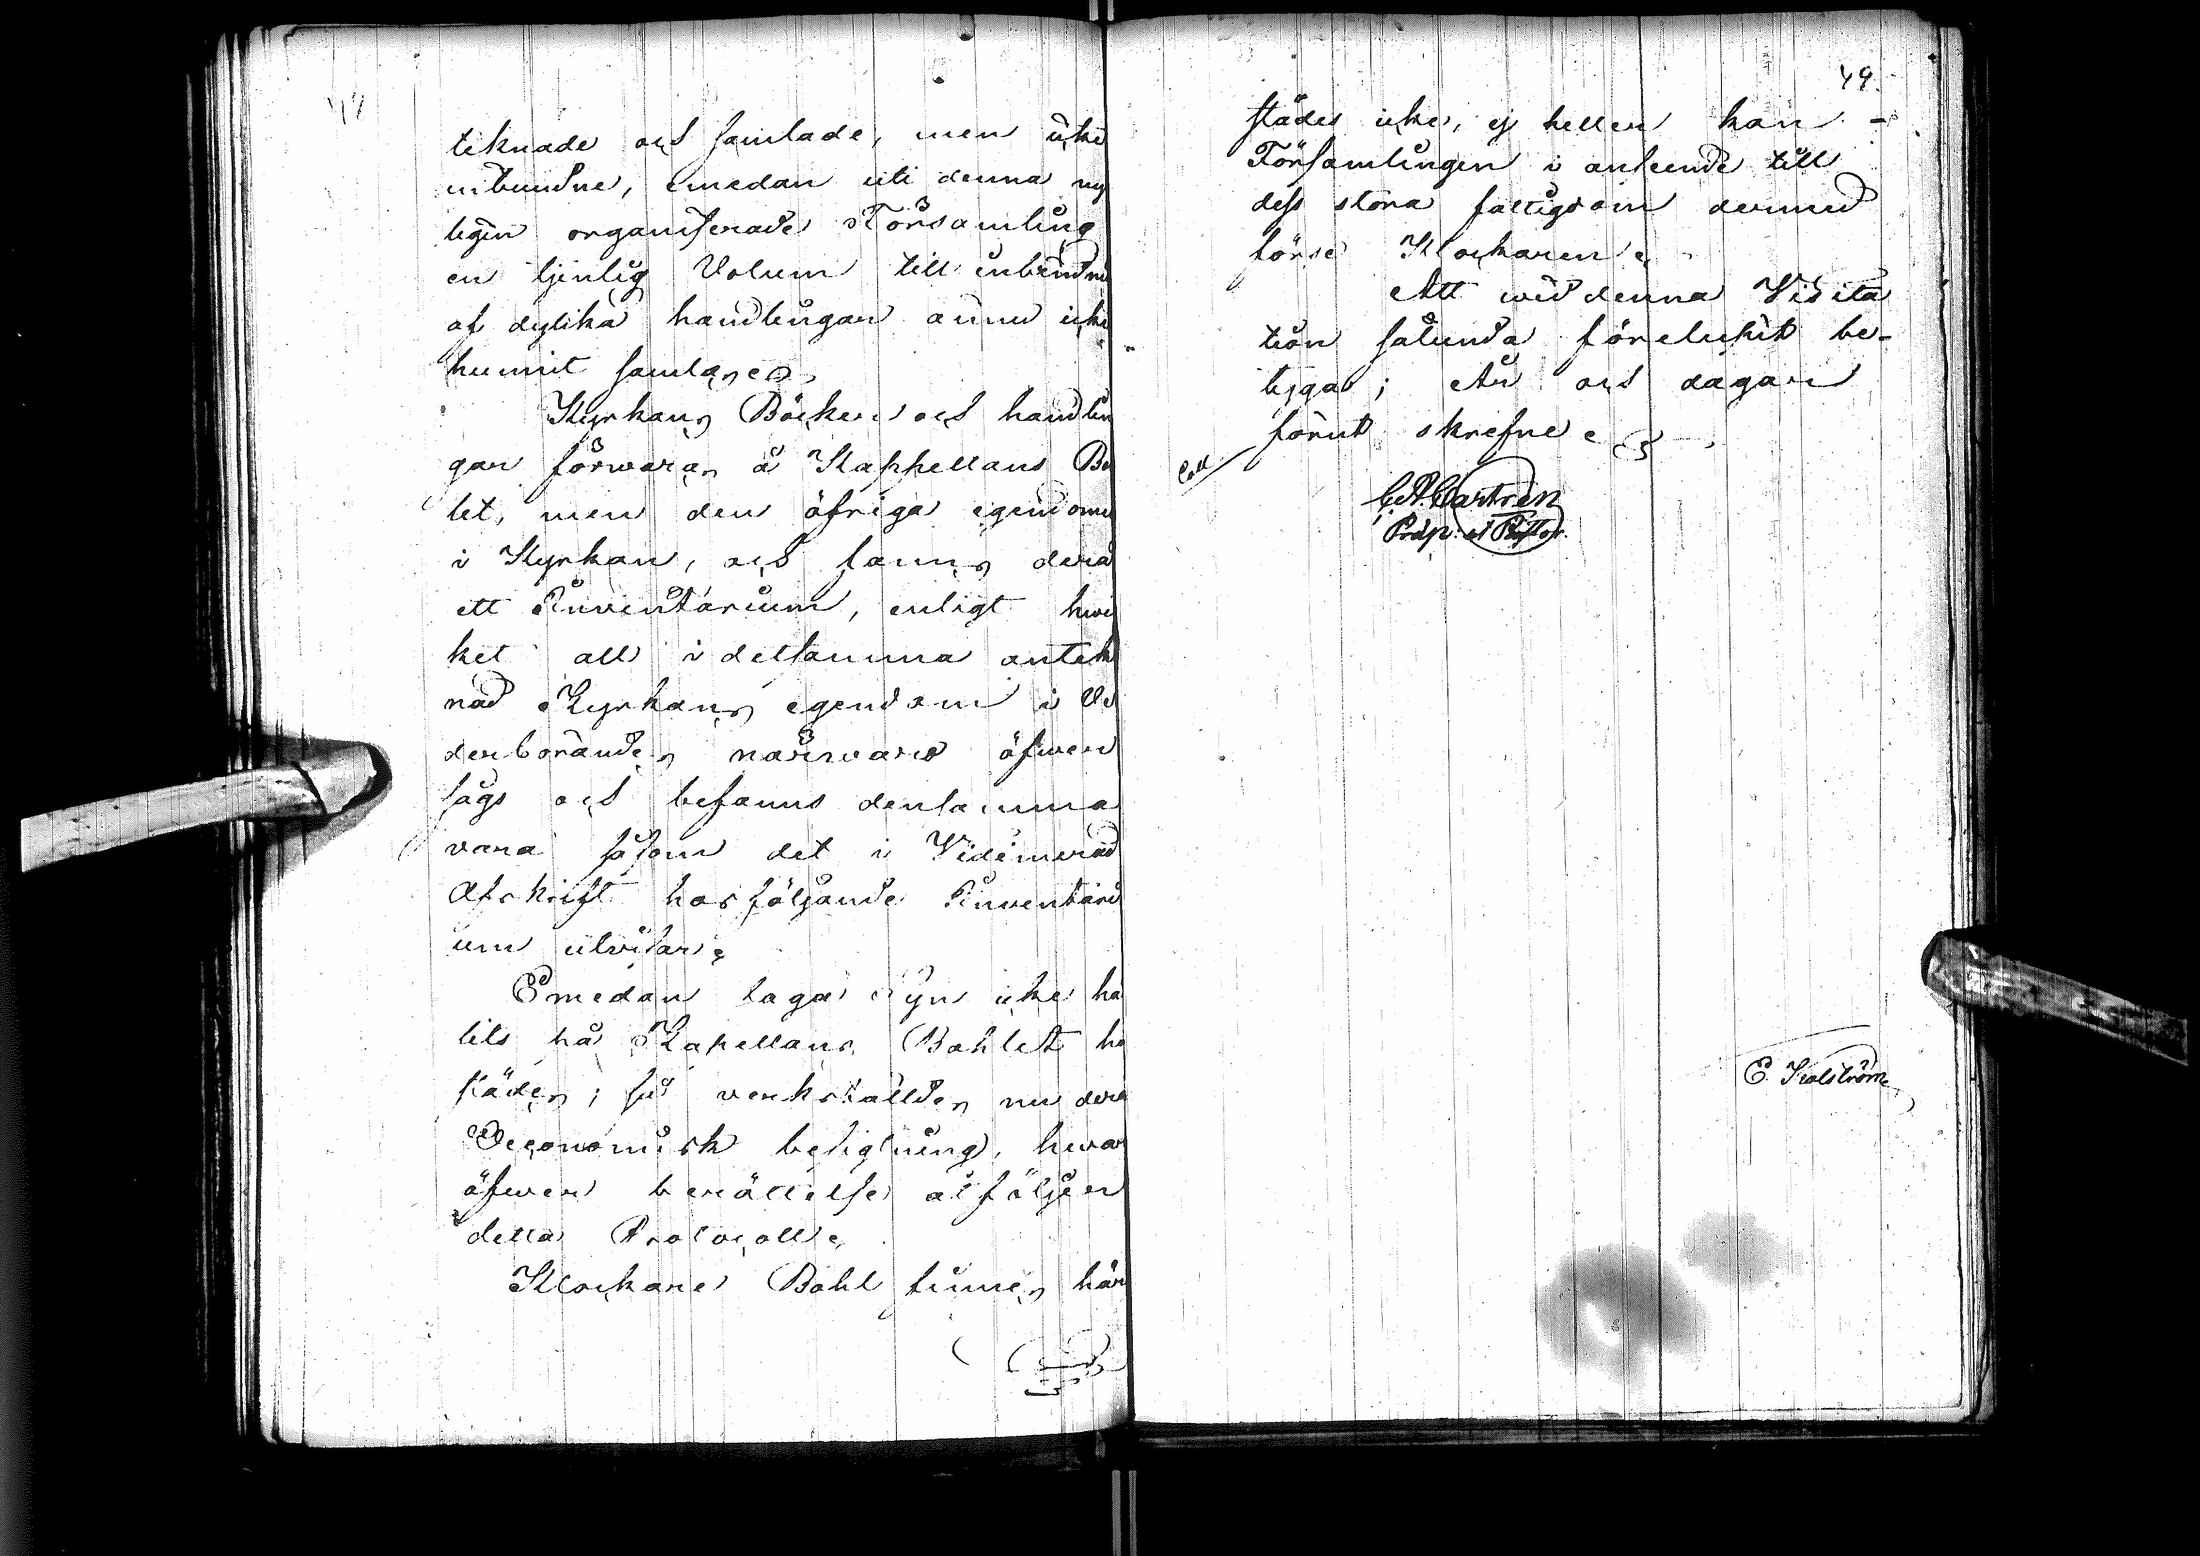 teknade och samlade, men icke
inbundne, emedan uti denna ny
ligen organiserade Församling
en tjenlig Volum till inbindni
af dylika handlingar ännu icke
hunnit samlas.
Kyrkans Böcker och handlin
gar förwaras å Kappellans Bo
let, men den öfriga egendomen
i Kyrkan, och fanns derå
ett Inventarium, enligt hwil
ket all i detsamma antek
nad Kyrkans egendom i Ve
derbörandes närwaro öfwer
sågs och befanns densamma
vara såsom det i Vidimerad
Afskrift hosföljande Inventari
um utvisar.
Emedan laga Syn icke hål
lits på Kapellans Bohlet hä
städes; så verkställdes nu derå
Oeconomisk besigtning, hwar
öfwer berättelse åtföljer
detta Protocoll.
Klockare Bohl finnes här
49.
städes icke, ej heller kan -
Församlingen i anseende till
dess stora fattigdom dermed
förse Klockaren.
Att wid denna Visita
tion sålunda föreluppit be-
tygas; År och dagar
förut skrefne.
Coll
Präp: et Pastor.